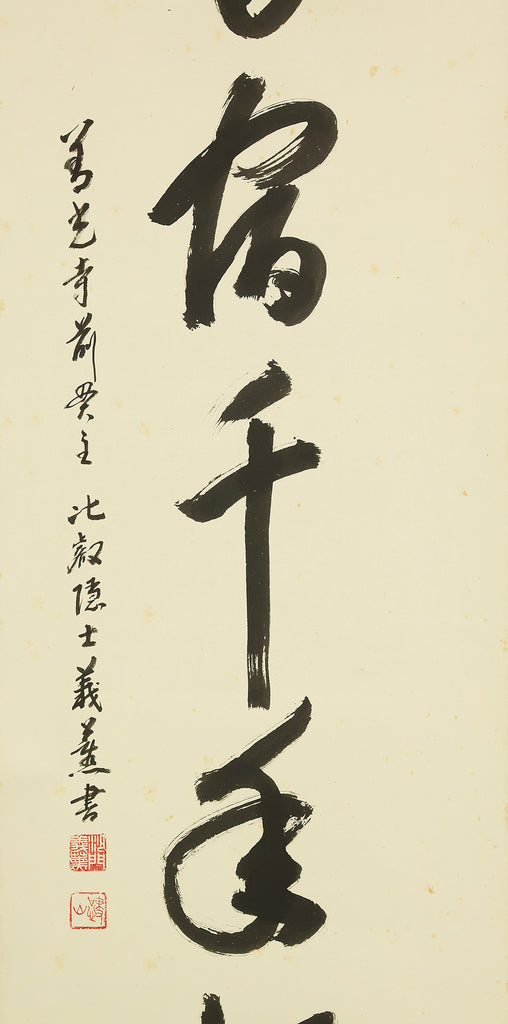 宿千年
善光寺前貫主 比叡隠士義薫書